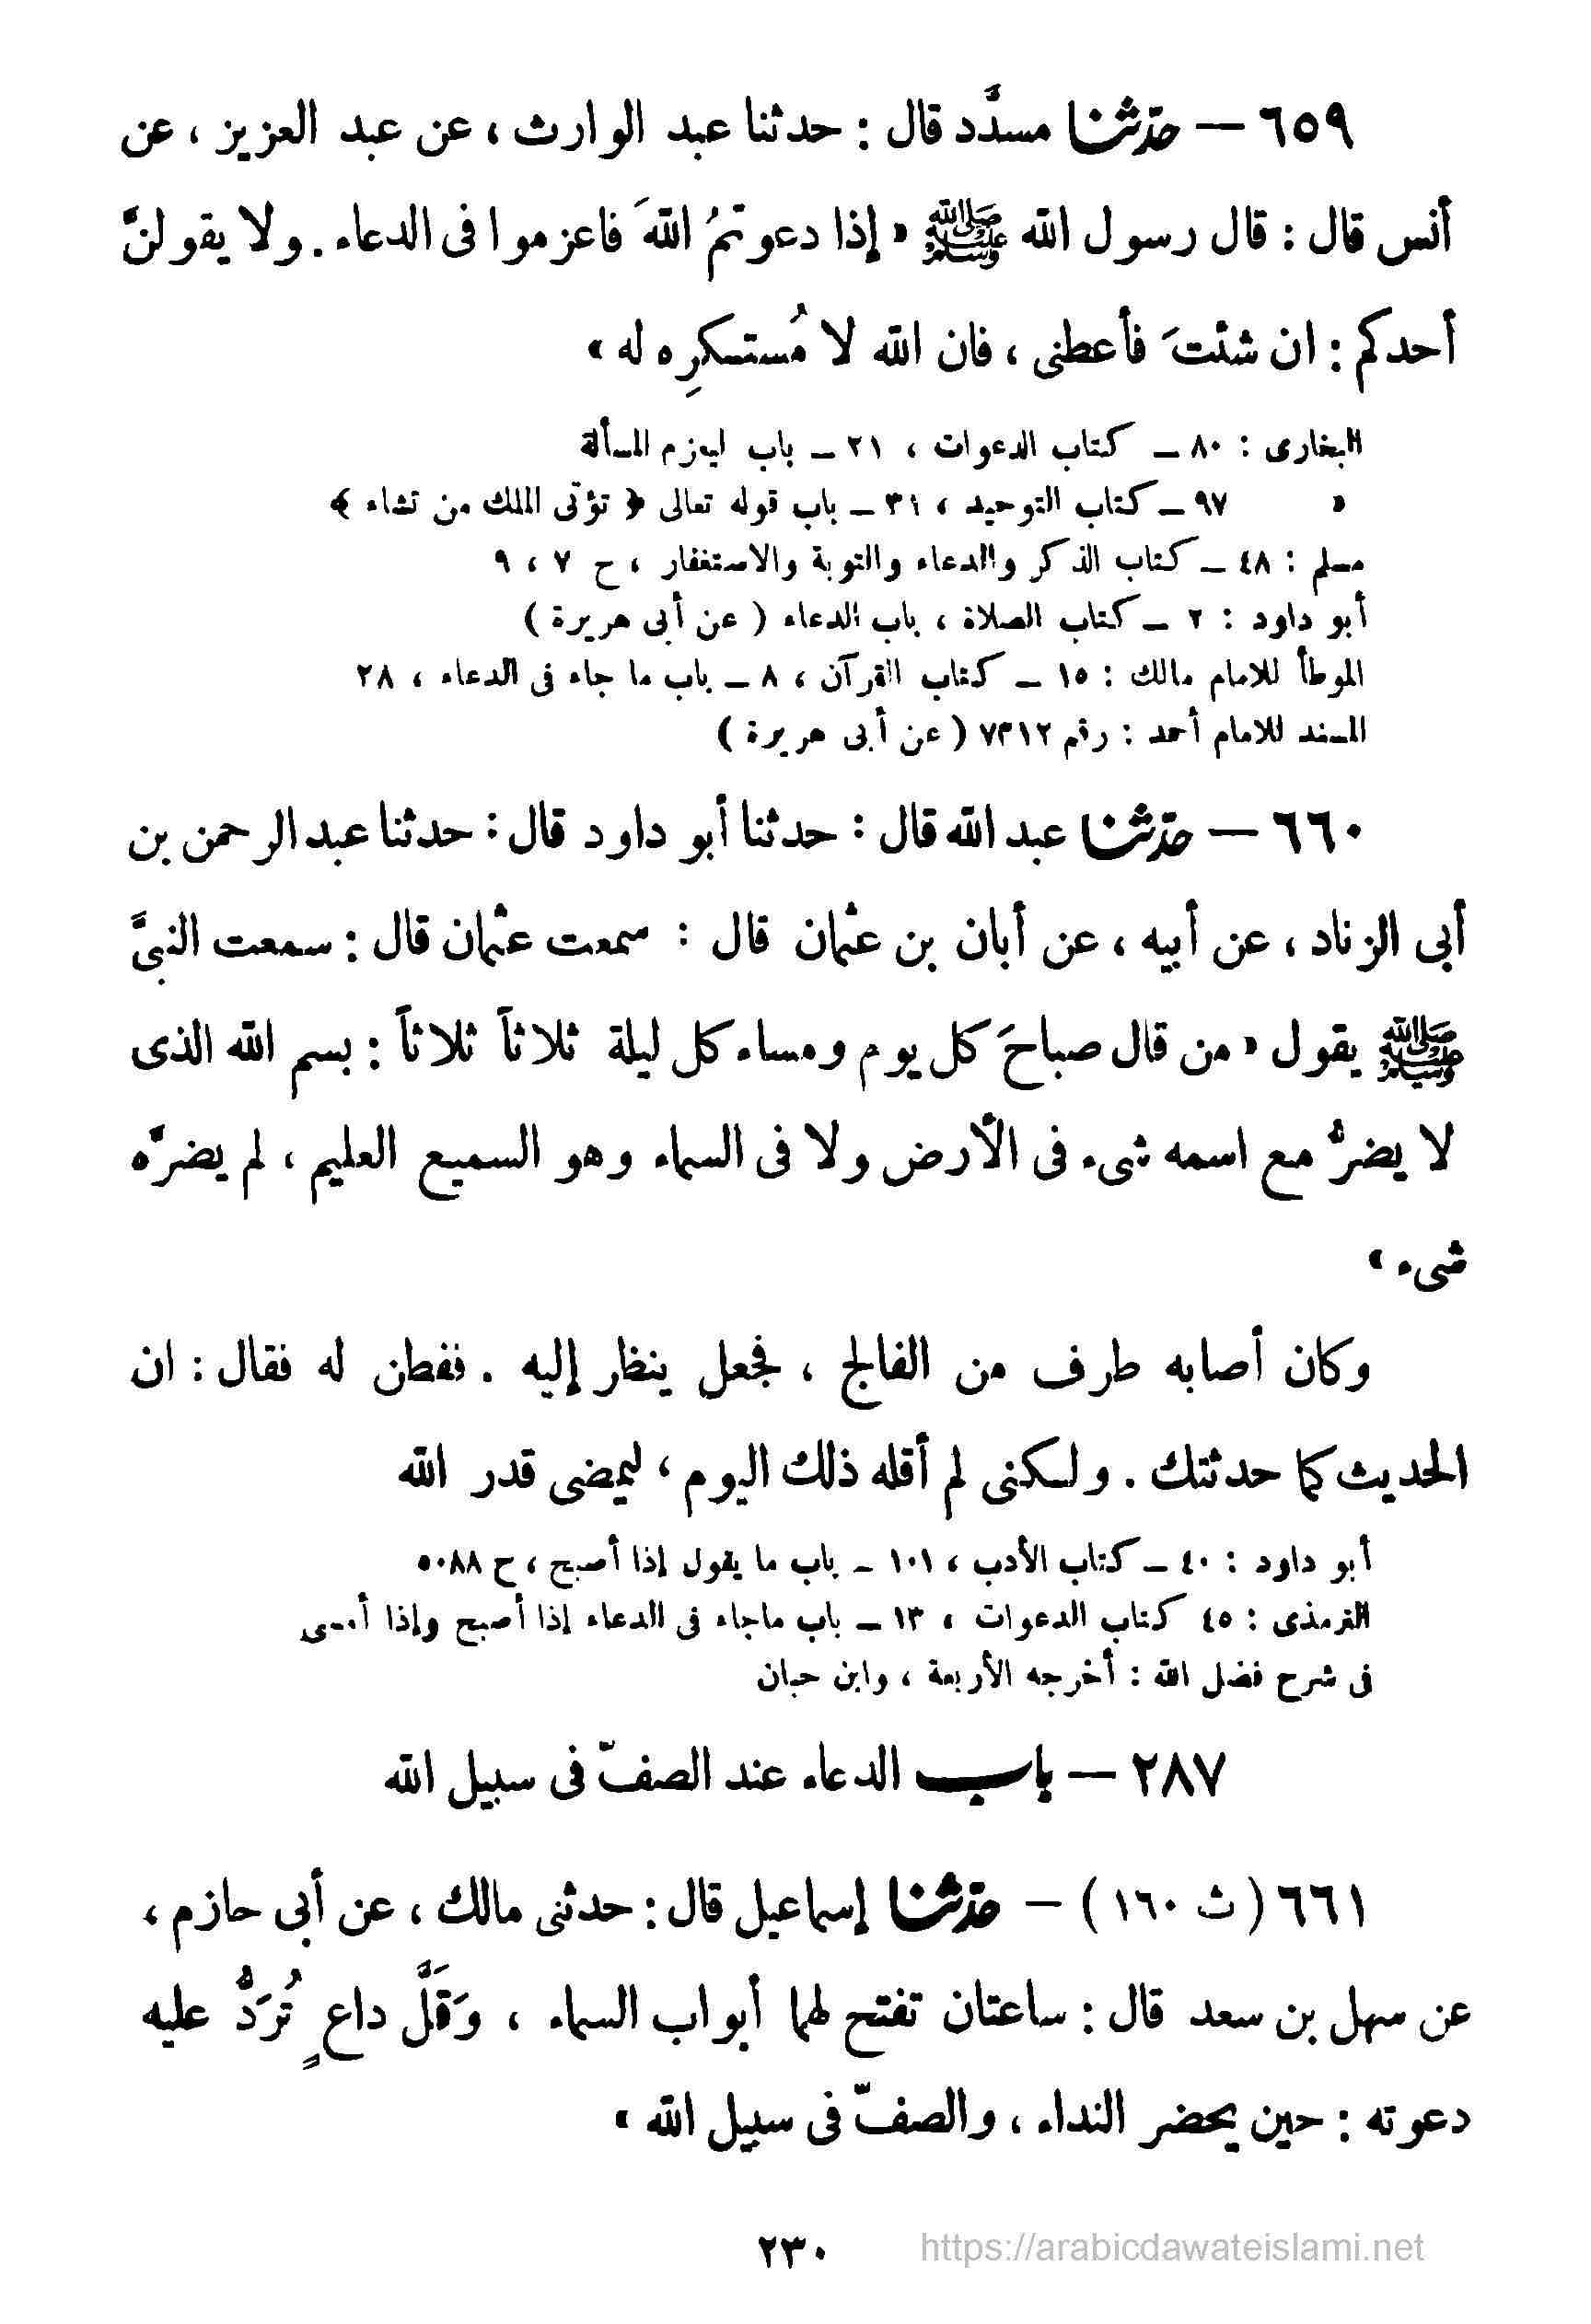 ٦٥٩ — حدّثنا مسدَّد قال : حدثنا عبد الوارث ، عن عبد العزيز ، عن
أنس قال : قال رسول الله ﷺ « إذا دعوتمُ اللهَ فاعزموا فى الدعاء . ولا يقولنَّ
أحدكم : ان شئتَ فأعطنى ، فان الله لا مُستكرِه له »
البخارى : ٨٠ ـ كتاب الدعوات ، ٢١ ـ باب ليعزم المسألة
» ٩٧ ـ كتاب التوحيد ، ٣١ ـ باب قوله تعالى ﴿ تؤتى الملك من تشاء ﴾
مسلم : ٤٨ ـ كتاب الذكر والدعاء والتوبة والاستغفار ، ح ٧ ، ٩
أبو داود : ٢ ـ كتاب الصلاة ، باب الدعاء ( عن أبى هريرة )
الموطأ للامام مالك : ١٥ ـ كتاب القرآن ، ٨ ـ باب ما جاء فى الدعاء ، ٢٨
المسند للامام أحمد : رقم ٧٣١٢ ( عن أبى هريرة )
٦٦٠ — حدّثنا عبد الله قال : حدثنا أبو داود قال : حدثنا عبد الرحمن بن
أبى الزناد ، عن أبيه ، عن أبان بن عثمان قال : سمعت عثمان قال : سمعت النبىَّ
ﷺ يقول « من قال صباحَ كل يوم ومساء كل ليلة ثلاثاً ثلاثاً : بسم الله الذى
لا يضرُّ مع اسمه شىء فى الأرض ولا فى السماء وهو السميع العليم ، لم يضرَّه
شىء »
وكان أصابه طرف من الفالج ، فجعل ينظر إليه . ففطن له فقال : ان
الحديث كما حدثتك . ولكنى لم أقله ذلك اليوم ، ليمضى قدر الله
أبو داود : ٤٠ ـ كتاب الأدب ، ١٠١ ـ باب ما يقول إذا أصبح ، ح ٥٠٨٨
الترمذى : ٤٥ كتاب الدعوات ، ١٣ ـ باب ماجاء فى الدعاء إذا أصبح وإذا أمسى
فى شرح فضل الله : أخرجه الأربعة ، وابن حبان
٢٨٧ — باب الدعاء عند الصفّ فى سبيل الله
٦٦١ ( ث ١٦٠ ) — حدّثنا إسماعيل قال : حدثنى مالك ، عن أبى حازم ،
عن سهل بن سعد قال : ساعتان تفتح لهما أبواب السماء ، وَقَلَّ داعٍ تُرَدُّ عليه
دعوته : حين يحضر النداء ، والصفّ فى سبيل الله »
٢٣٠
https://arabicdawateislami.net